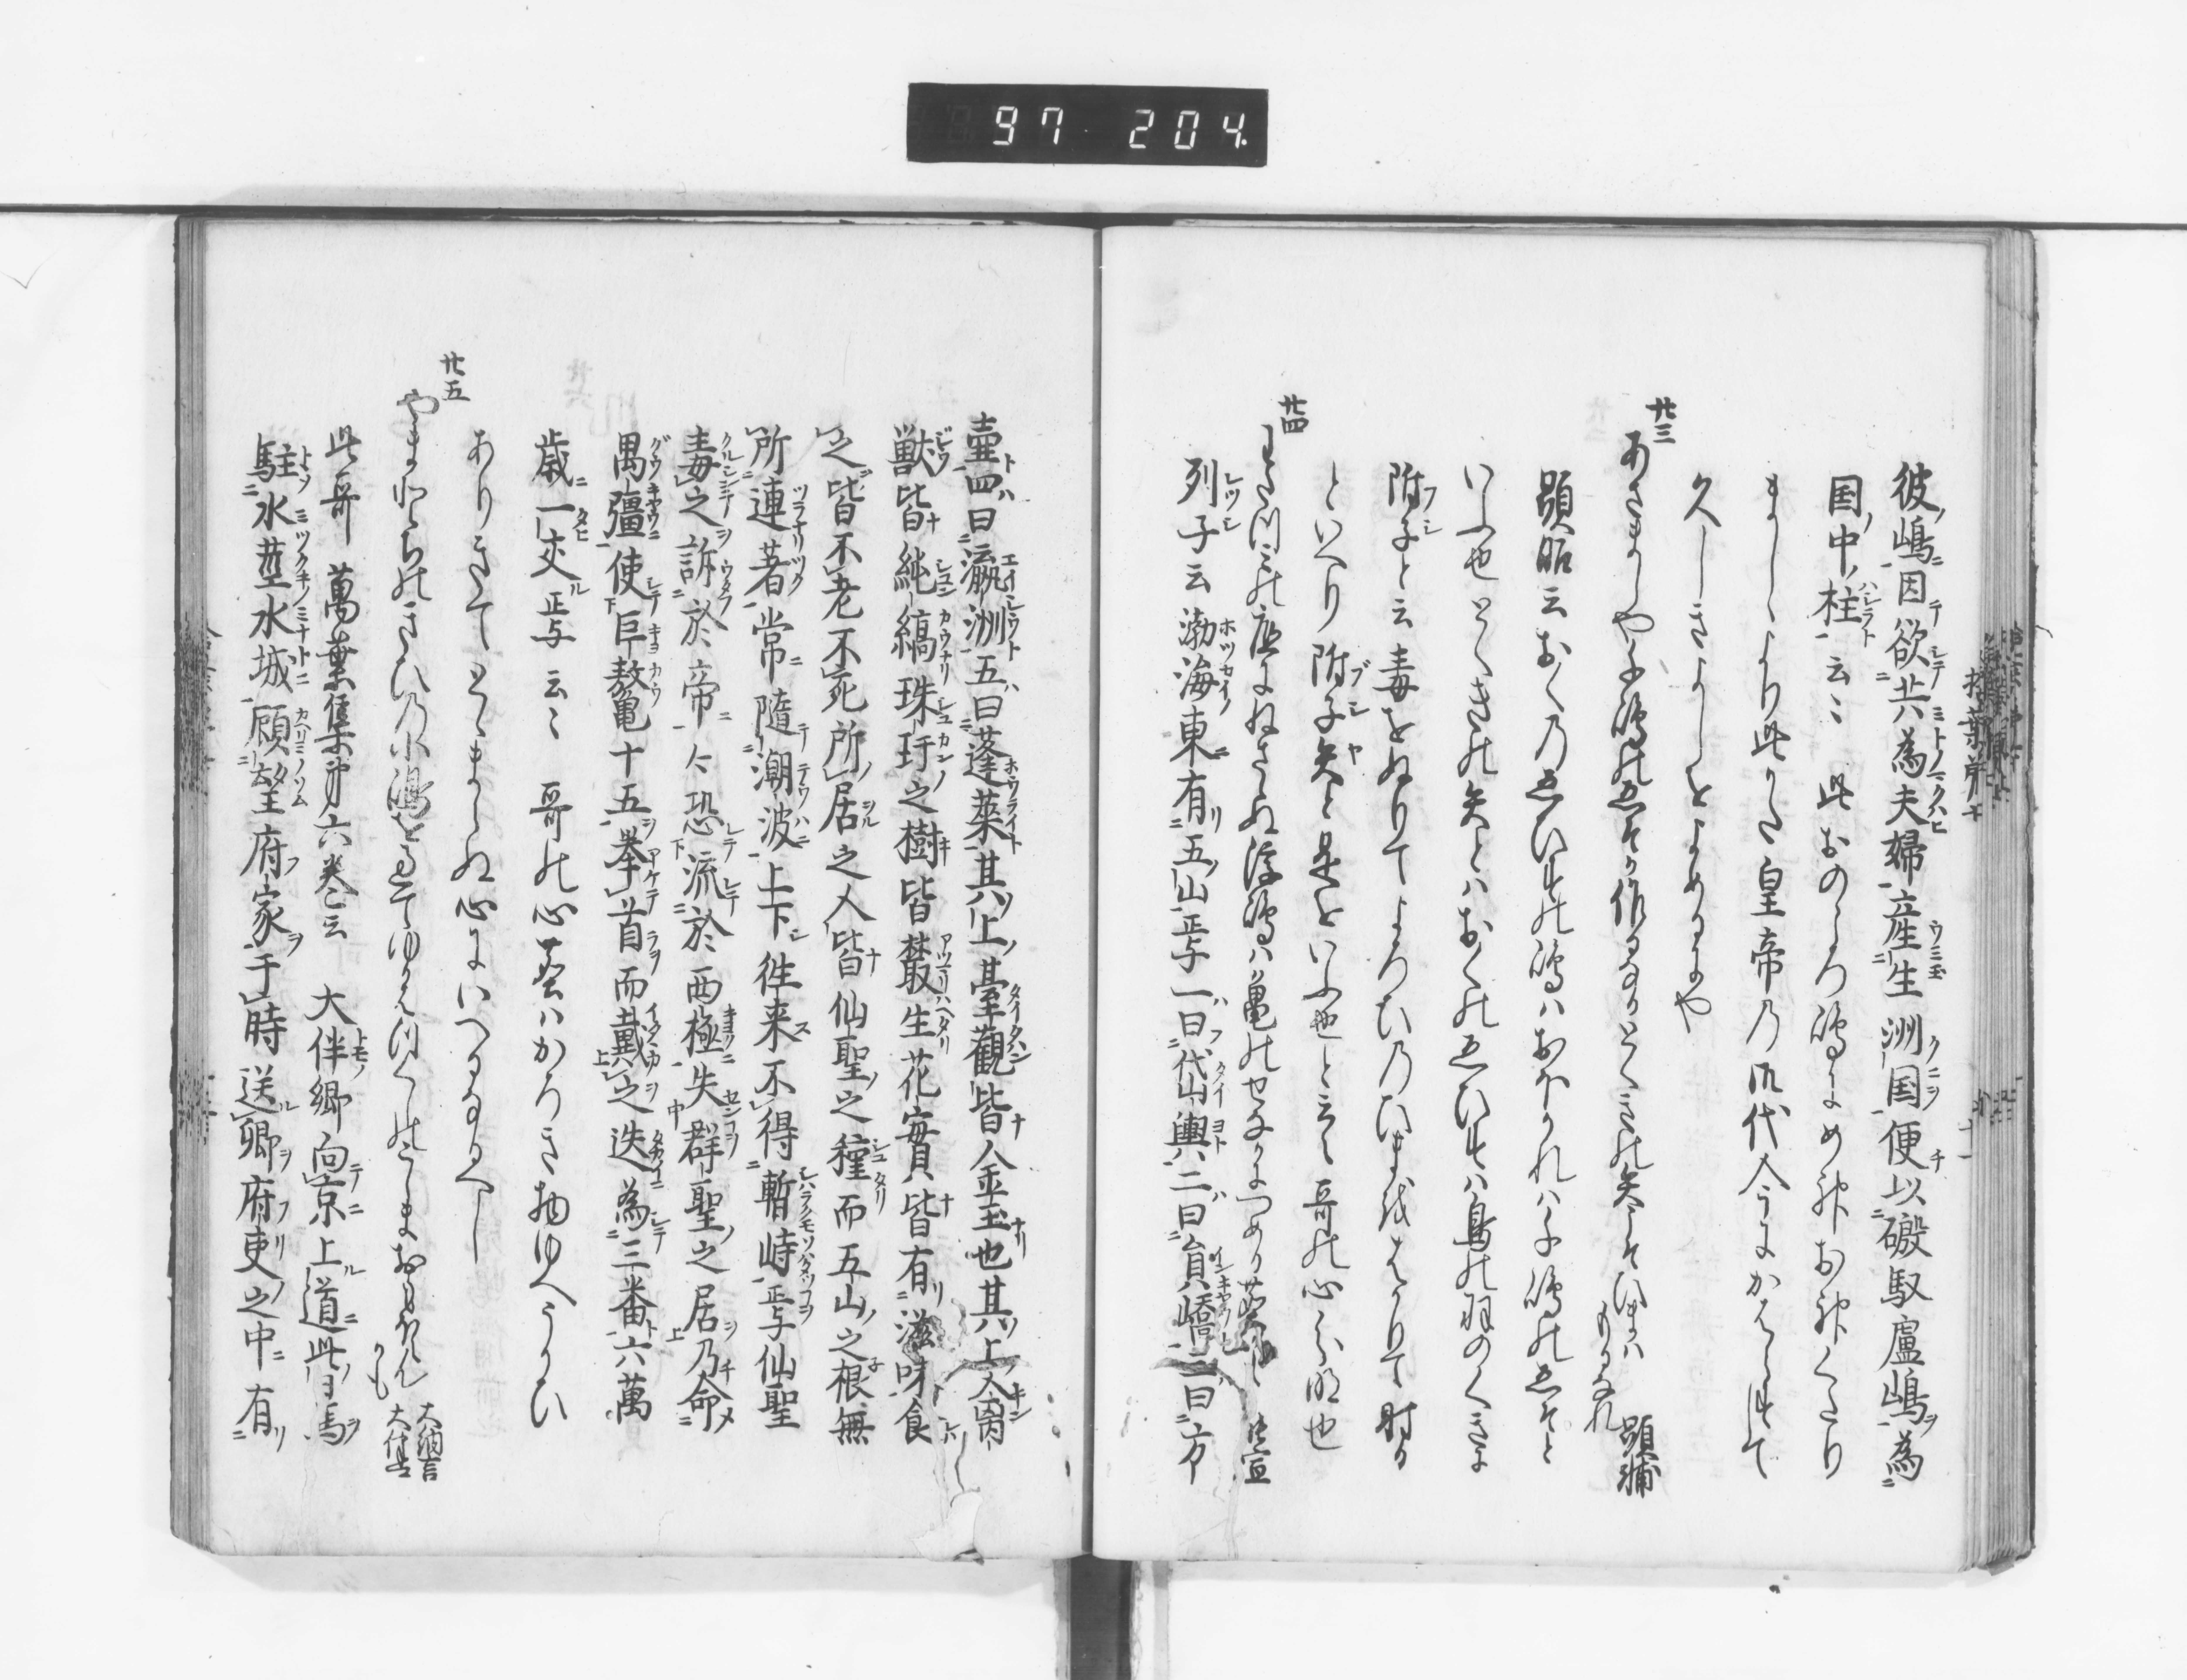 97 204.
彼嶋因欲共為夫婦産生洲国便以磤馭盧嶋為
国中柱云〻 此おのころ嶋によめ神お神くたり
ましより此かた皇帝乃御代今にかはらすして
久しきよしをよめるにや
廿三
あさましや千嶋のえそか作るなるとくきの矢こそひまはもるなれ 顕輔
顕昭云おくの乃えひすの嶋はおほかれは千嶋のえそと
いふ也とくきの矢とはおくのえひすは鳥の羽のくきに
附子と云毒をぬりてよろひのひまをはかりて射る
といへり附子矢と是をいふ也と云〻哥の心分明也
廿四
わたつ海の底にねさゝぬ浮嶋は亀のせなかにつめる
列子云渤海東有五山与一曰岱輿二曰員嶠三曰方
壺四曰瀛洲五曰蓬莱其上臺観皆金玉也其上禽
獣皆純縞珠玕之樹皆叢生花實皆有滋味食
之皆不老不死所居之人皆仙聖之種而五山之根無
所連著常隨潮波上下往来不得暫峙与仙聖
毒之訴於帝〻恐流於西極失群聖之居乃命
禺彊使巨鼇十五挙首而戴之迭為三番六萬
歳一交与云〻 哥の心蓬はかろき物ゆへうかひ
ありきてとゝまらぬ心にいへるなるへし
廿五
やまとちのきひの小嶋を過てゆかはつくしのこしまおもほえんかも 大納言大伴
此哥萬葉集第六巻云 大伴卿向京上道此日馬
駐水莖水城顧望府家于時送卿府吏之中有